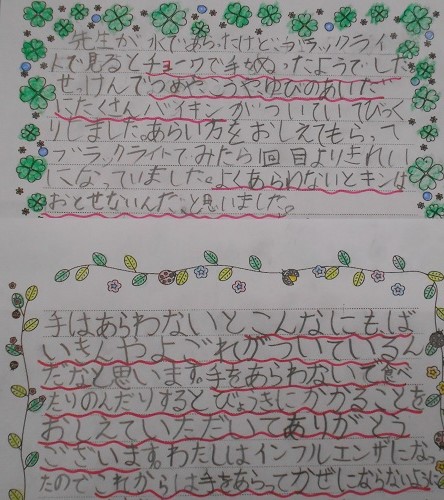 先生が水であらったけど、ブラックライ
トで見るとチョークで手がぬったようでした
せっけんでつめやこうやゆびのあいだ
にたくさんバイキンがついていてびっく
りしました。あらい方をおしえてもらって
ブラックライトでみたら1回目よりきれい
になっていました。よくあらわないとキンは
おとせないんだ。と思いました。
手はあらわないとこんなにも、ば
いきんやよごれがついているん
だなと思います。手をあらわないで食べ
たりのんだりするとびょうきにかかることを
おしえていただいてありがとう
ございます。わたしはインフルエンザになっ
たのでこれからは手をあらってかぜにならないように